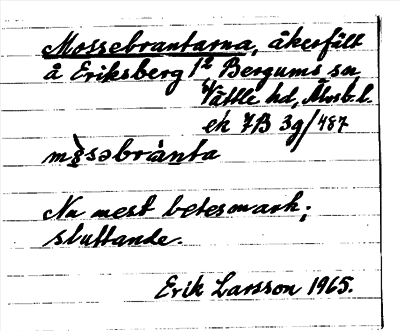 Mossebrantarna, åkerfält
å Eriksberg 1² Bergums sn,
Vättle hd, Älvsb. l.
ek 7B 3g/487
Nu mest betesmark;
sluttande.
Erik Larsson 1965.